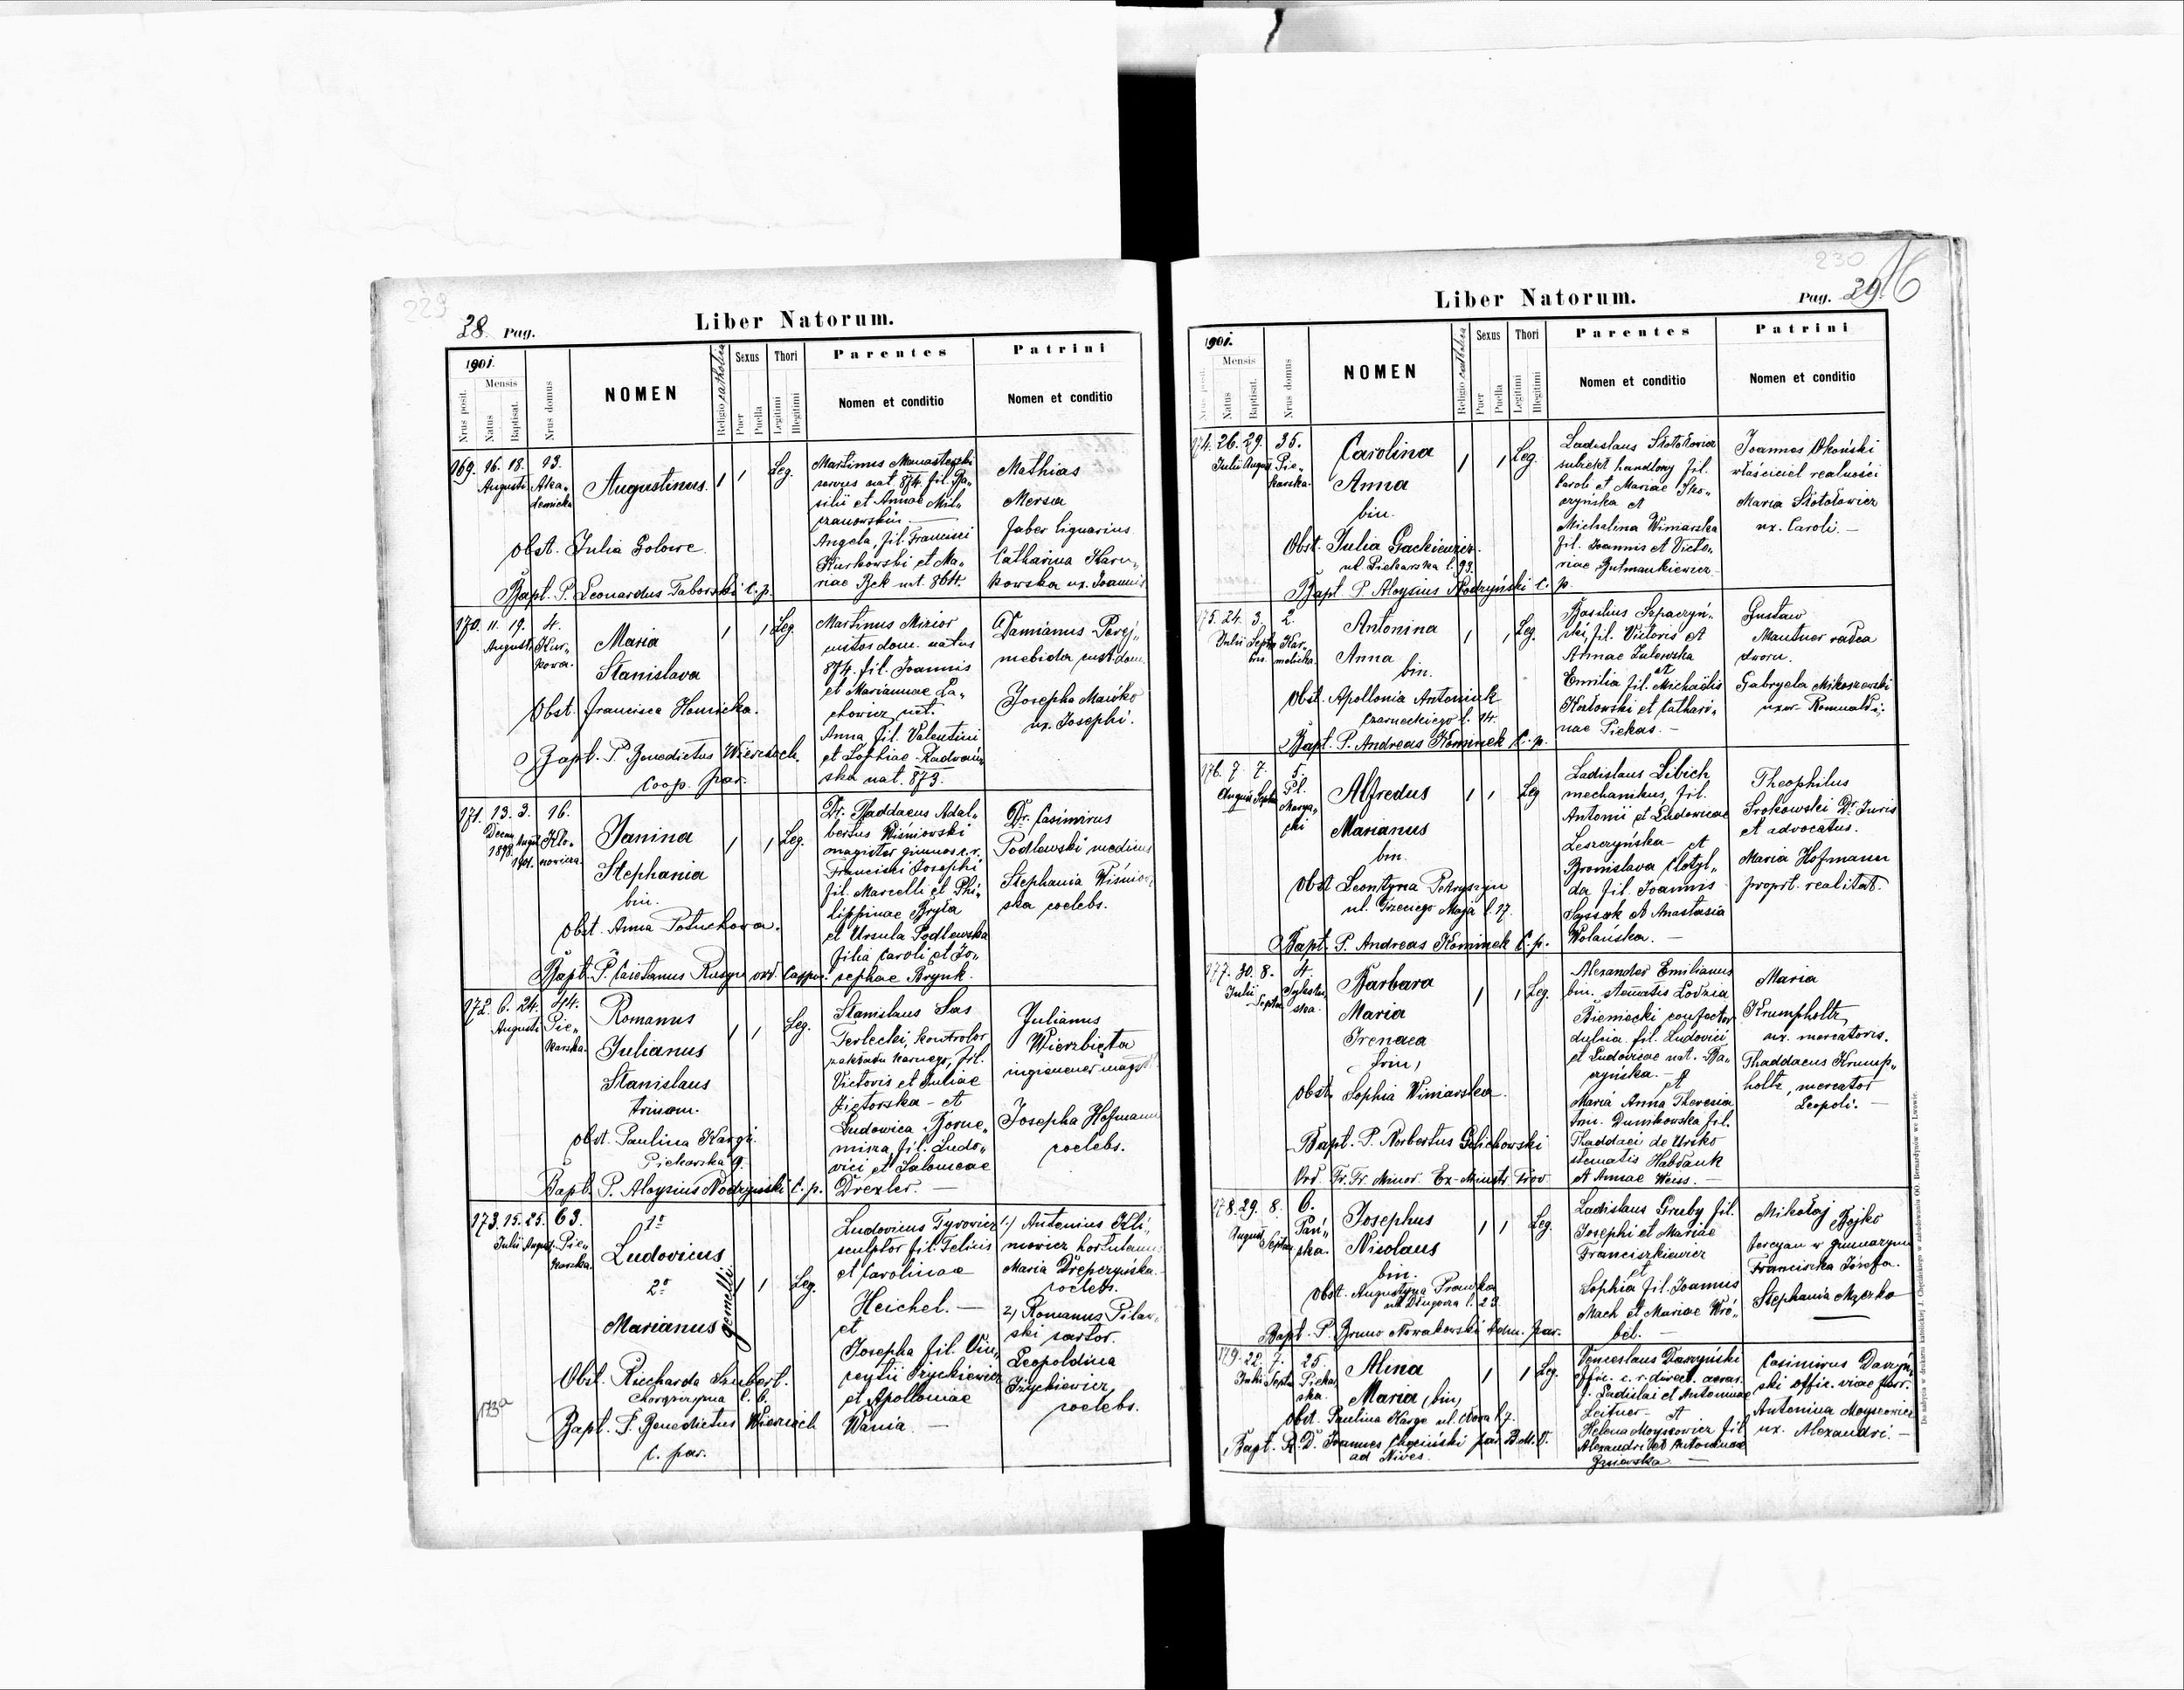 229
28. Pag.
Liber Natorum.
1901.
Nrus posit.
Mensis
Natus
Baptisat.
Nrus domus
NOMEN
Religio catholica
Sexus
Puer
Puella
Thori
Legitimi
Illegitimi
Parentes
Nomen et conditio
Patrini
Nomen et conditio
169. 16. 18. 13.
Augusti Aka-
demicka
Augustinus.
Leg.
Obst. Julia Golowe
Bapt. P. Leonardus Taborski C. p.
Martinus
servus nat 874. fil. Ba-
silii et Annae Mil-
czanowskim
Angela, fil. Francisci
Kurkowski et Ma-
riae Bek nat. 864.
Mathias
Mersa
faber lignarius
Catharina Karn-
kowska ux. Joannis
170. 11. 19. 4.
Augusti Kur-
kowa.
Maria
Stanislava
Leg.
Obst. Francisca Homicka.
Bapt. P. Benedictus Wiercioch
Coop. par.
Martinus Mizior
custos dom. natus
874. fil. Joannis
et Mariannae La-
chowicz nat.
Anna fil. Valentini
et Sophiae Radwań-
ska nat. 873.
Damianus Perej-
mebida cust. dom.
Josepha Mańko
ux. Josephi.
171. 13. 3. 16.
Decem. 1898. August 1901. Klo-
nowicza.
Janina
Stephania
bin.
Leg.
Obst. Anna Potuchowa.
Bapt. P. Caietanus Rusyn ord. Capuc.
Dr. Thaddaeus Adal-
bertus Wiśniowski
magister gimnas. c. r.
Francisci Josephi
fil. Marcelli et Phi-
lippinae Bryła
et Ursula Podlewska
filia Caroli et Jo-
sephae Brynk.
Dr. Casimirus
Podlewski medicus
Stephania Wiśniow-
ska coelebs.
172. 6. 24. 44.
Augusti Pie-
karska.
Romanus
Julianus
Stanislaus
trinom.
Leg.
Obst. Paulina Kargi
Piekarska 9.
Bapt. P. Aloysius Nodzyński C. p.
Stanislaus Sas
Terlecki, kontrolor
zakładu karnego, fil.
Victoris et Juliae
Zietorska - et
Ludovica Borne-
misza, fil. Ludo-
vici et Salomeae
Drexler. —
Julianus
Wierzbięta
ingieneur magst.
Josepha Hofmann
coelebs.
173. 15. 25. 63.
Julii August. Pie-
karska.
1o
Ludovicus
2o
Marianus
gemelli
Leg.
Obst. Riccharda Szubert.
Chorążczyzna l. 6.
173a
Bapt. P. Benedictus Wiercioch
C. par.
Ludovicus Tyrowicz
sculptor fil. Felicis
et Carolinae
Heichel. —
et
Josepha fil. Vin-
centii Iżyckiewicz
et Apolloniae
Wania. —
1.) Antonius Kli-
mowicz hortulanus
Maria Drepczyńska
coelebs.
2.) Romanus Pilaw-
ski sartor.
Leopoldina
Iżyckiewicz,
coelebs.
230
16
Liber Natorum.
Pag. 29.
1901.
Nrus posit.
Mensis
Natus
Baptisat.
Nrus domus
NOMEN
Religio catholica
Sexus
Puer
Puella
Thori
Legitimi
Illegitimi
Parentes
Nomen et conditio
Patrini
Nomen et conditio
174. 26. 29. 35.
Julii August Pie-
karska.
Carolina
Anna
bin.
Leg.
Obst. Julia Gackiewicz.
ul. Piekarska l. 93.
Bapt. P. Aloysius Nodzyński C. p.
Ladislaus Stotołowicz
subiekt handlowy fil.
Caroli et Mariae Sko-
czyńska et
Michalina Winiarska
fil. Joannis et Victo-
riae Gutmankiewicz
Joannes Okoński
właściciel realności
Maria Stotołowicz
ux. Caroli. —
175. 24. 3. 2.
Julii Septem-
bris. Kar-
melicka.
Antonina
Anna
bin.
Leg.
Obst. Apollonia Antoniuk
Czarneckiego l. 14.
Bapt. P. Andreas Kominek C. p.
Basilius Szpaczyń-
ski, fil. Victoris et
Annae Zulowska
et
Emilia fil. Michaëlis
Kozłowski et Cathari-
nae Piekas. —
Gustaw
Mautner radca
dworu.
Gabryela Mikoszewski
uxor Romualdi.
176. 7. 7. 5.
August Septem. Pl.
Marya-
cki
Alfredus
Marianus
bin.
Leg
Obst Leontyna Petryszyn
ul. Trzeciego Maja l. 17.
Bapt. P. Andreas Kominek C. p.
Ladislaus Libich
mechanikus, fil.
Antonii et Ludovicae
Leszczyńska - et
Bronislava Clotyl-
da fil. Joannis
Sassak et Anastasia
Wolańska. —
Theophilus
Srokowski Dr. Juris
et advocatus.
Maria Hofmann
propri. realitat.
177. 30. 8. 4.
Julii Septem. Sykstu-
ska.
Barbara
Maria
Irenaea
trin,
Leg.
Obst. Sophia Winiarska.
Bapt. P. Norbertus Golichowski
Ord. Fr. Fr. Minor. Ex-Ministr. Prov.
Alexander Emilianus
bin. stematis Lodzia
Bieniecki confector
dulcia fil. Ludovici
et Ludovicae nat. Ba-
czyńska. — et
Maria Anna Theresia
trin. Dunikowska fil.
Thaddaei de Ursko
stematis Habdank
et Annae Weiss. —
Maria
Krumpholtz
ux. mercatoris.
Thaddaeus Krump-
holtz, mercator
Leopoli. —
178. 29. 8. 6.
August Septem. Pań-
ska.
Josephus
Nicolaus
bin.
Leg.
Obst. Augustyna Prawska
ul. Długosza l. 23.
Bapt. P. Bruno Nowakowski Adm. par.
Ladislaus Gruby fil.
Josephi et Mariae
Franciszkiewicz
et
Sophia fil. Joannis
Mach et Mariae Wró-
bel. —
Mikołaj Bojko
tercyan w gimnazyum
Franciszka Józefa.
Stephania Mączka
179. 22. 7. 25.
Julii Septem. Piekar-
ska.
Alina
Maria, bin,
Leg.
Obst. Paulina Karge ul. Nowa l. 7.
Bapt. R. D. Joannes Chęciński par. B. M. V.
ad Nives.
Venceslaus Daszyński
offic. c. r. direct. aerar.
f. Ladislai et Antoninae
Leitner - et
Helena Moyszowicz fil
Alexandri et Antoninae
Casimirus Daszyń-
ski offic. viae ferr.
Antonina Moyszowicz
ux. Alexandri. —
Do nabycia w drukarni katolickiej J. Chęcińskiego w zabudowaniu OO. Bernardynów we Lwowie.